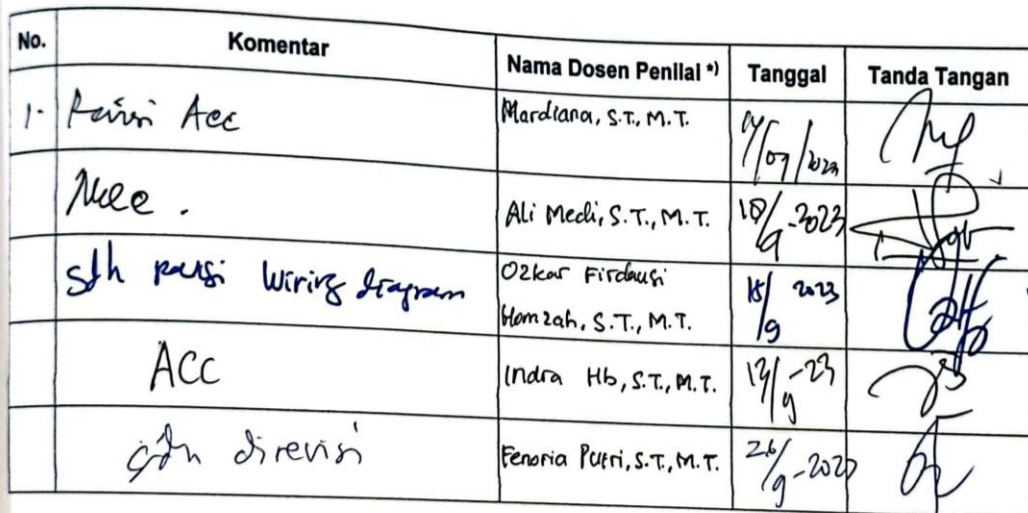 No. Komentar Nama Dosen Penilai *) Tanggal Tanda Tangan
1. Revisi Acc Mardiana, S.T., M.T. /09/2023
Ali Medi, S.T., M.T. 18/9-2023
sdh revisi wiring diagram Ozkar Firdausi
Homzah, S.T., M.T. 18/9 2023
ACC Indra Hb, S.T., M.T. /9-23
sdh direvisi Fenoria Putri, S.T., M.T. 26/9-2023